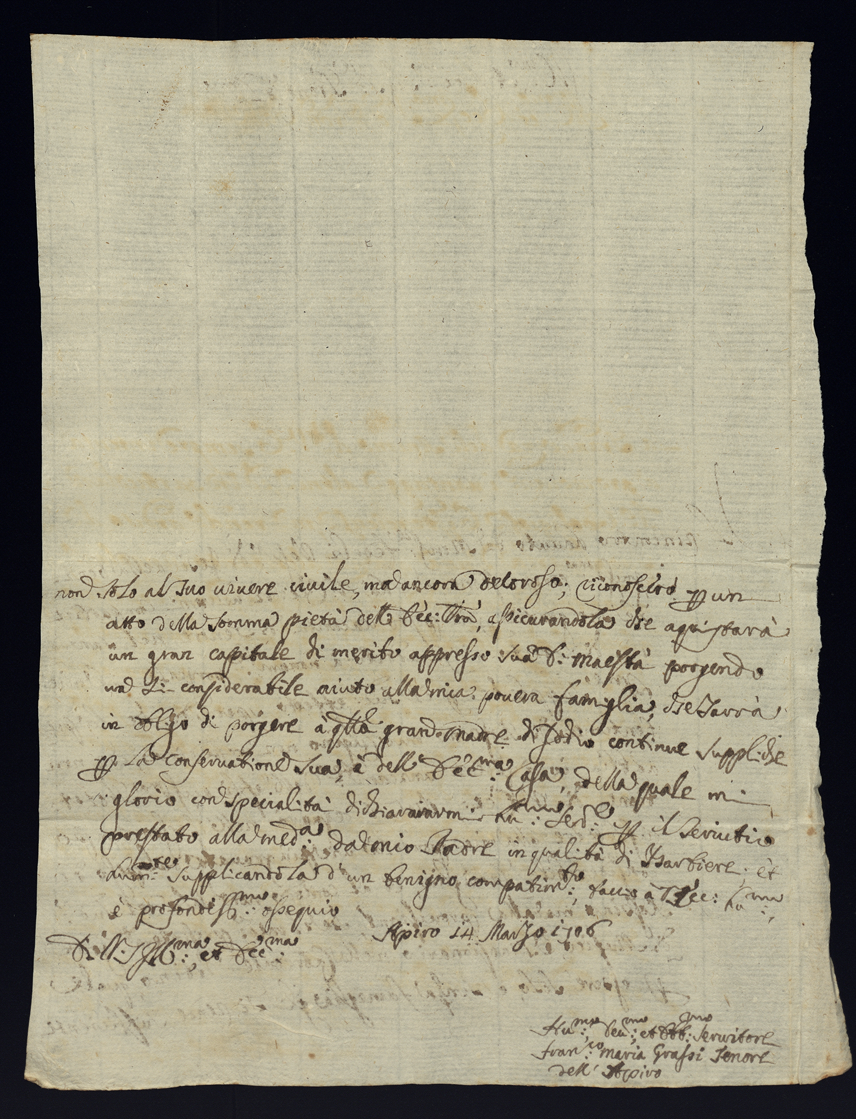 non solo al suo vivere civile, ma ancora decoroso; riconoscerò un
atto della somma pietà dell' Ecc: Vra, assicurandola che aquistarà
un gran cappitale di merito appresso Sua D: Maestà porgendo
un si considerabile aiuto alla mia povera famiglia, che sarrà
in obligo di porgere a qlla gran Madre di Iddio continue suppliche
la conservatione sua, e dell' Ecc:ma Casa, della quale mi
glorio con specialità dichiararmi hu:mo il servitio
prestato alla med:a dal mio Padre in qualità di Barbiere; et
supplicandola d' un benigno compatim:to, faccio a V: Ecc: hu:mo,
e profondiss:mo ossequio
Di V: S: Ill:ma, et Ecc:ma
Apiro 14 Marzo 1706
Hu:mo, Deu:mo, et Obb:mo Servitore
Fran:co Maria Grassi Tenore
dell' Apiro